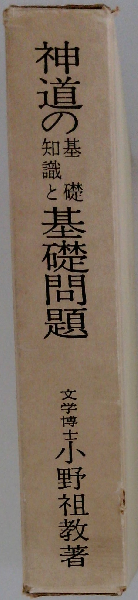 神道の基礎知識と基礎問題
文学博士 小野祖教著